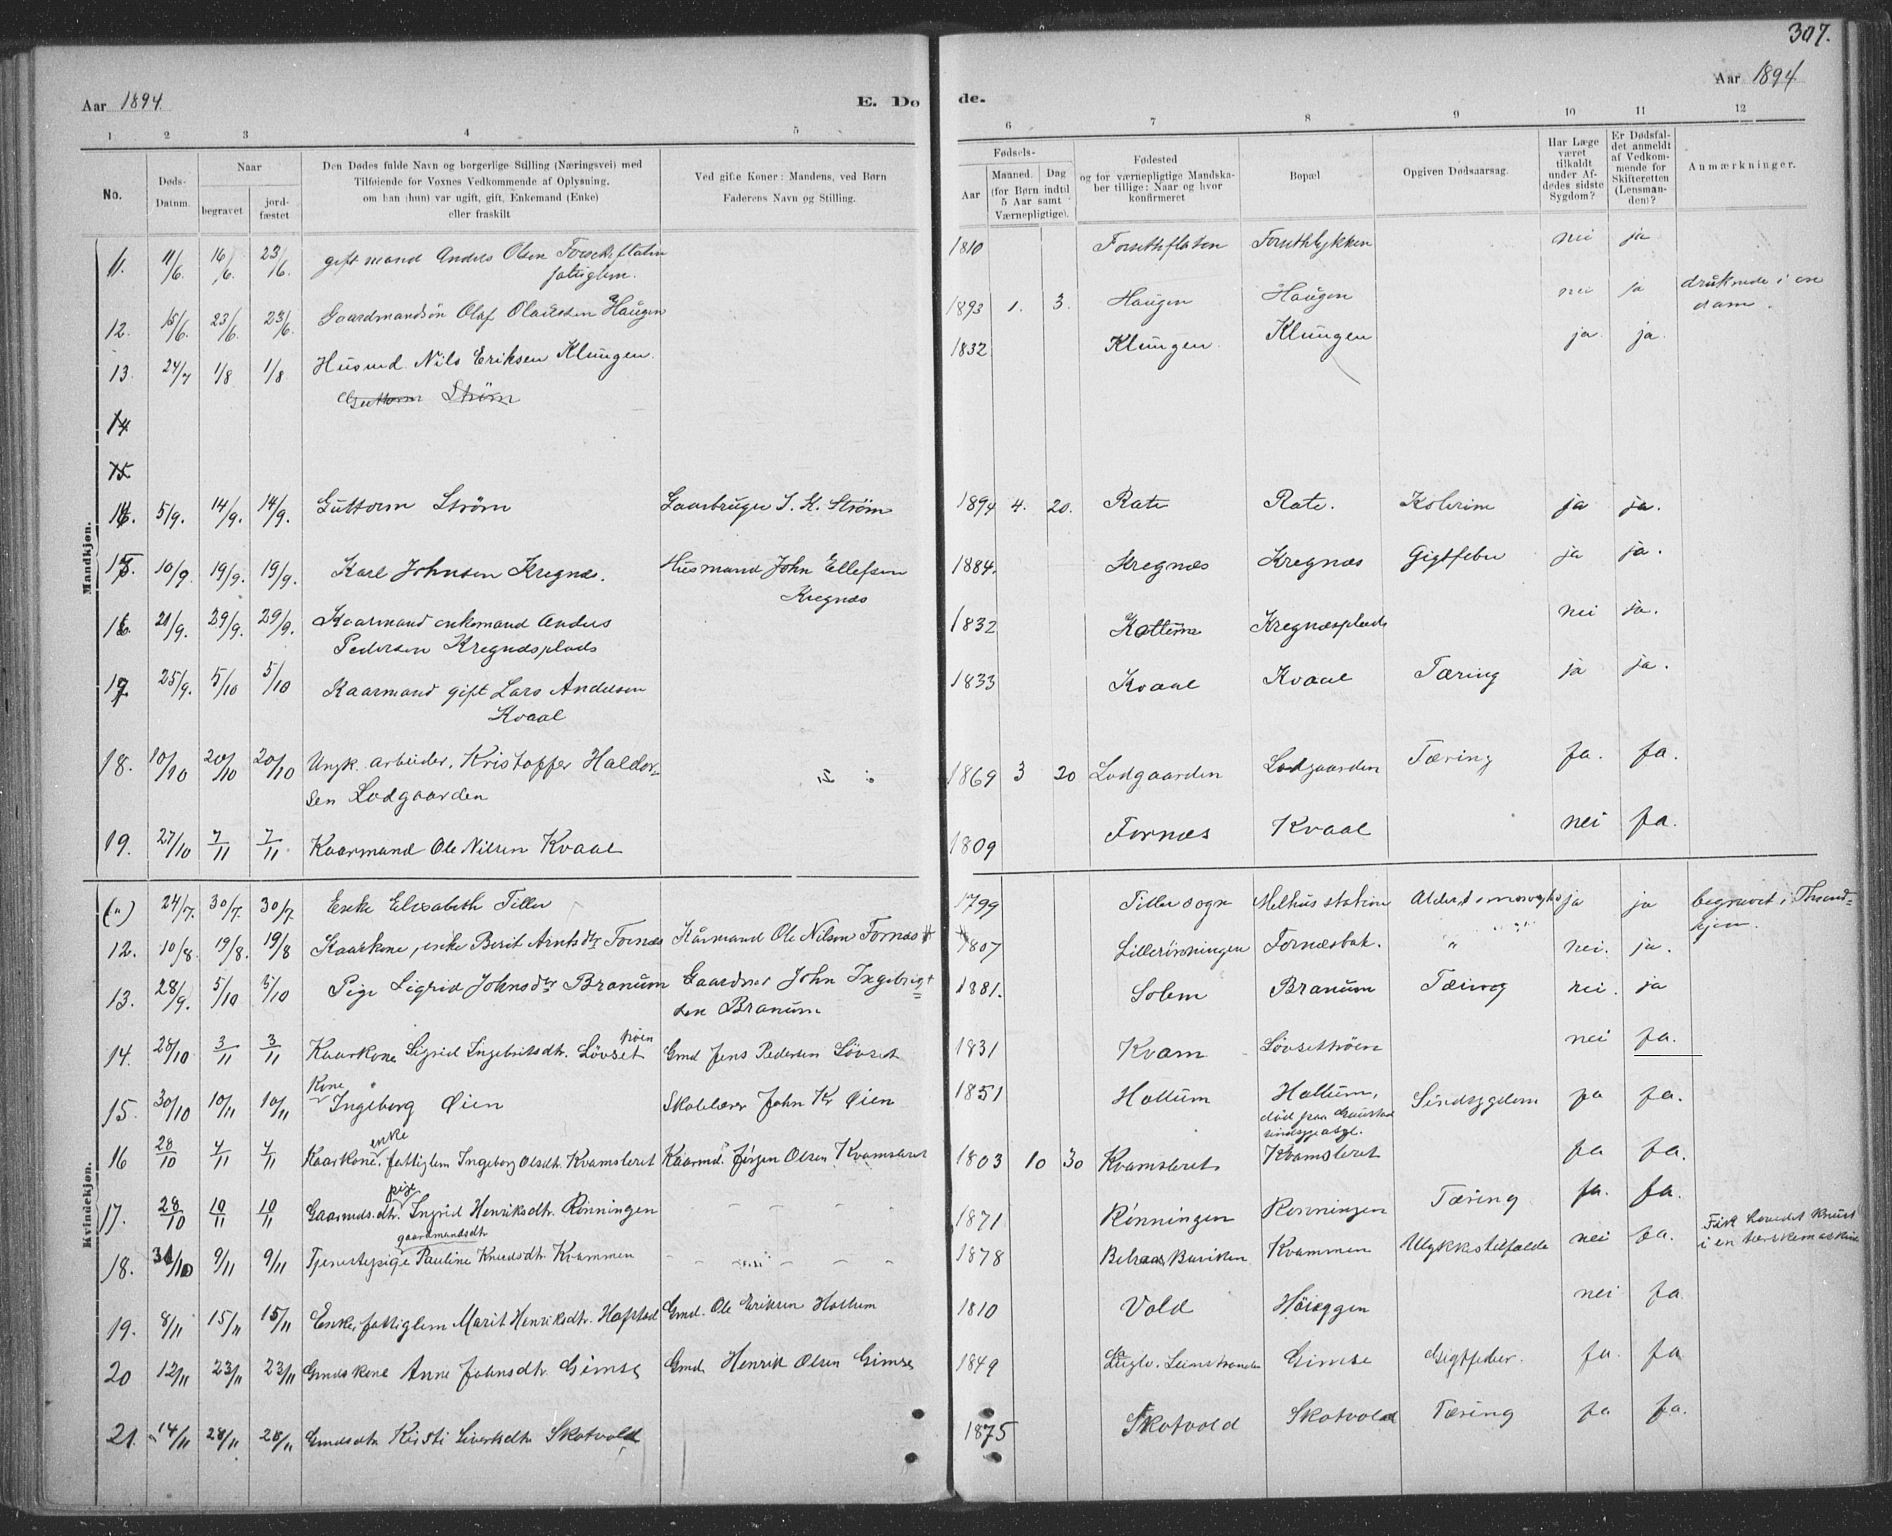 307.
Aar 1894.
E. Dø
de.
Aar 1894
1 2 3 4 5 6 7 8 9 10 11 12
No.
Døds-
Datum.
Naar
begravet
jord-
fæstet
Den Dødes fulde Navn og borgerlige Stilling (Næringsvei) med
Tilføiende for Voxnes Vedkommende af Oplysning,
om han (hun) var ugift, gift, Enkemand (Enke)
eller fraskilt
Ved gifte Koner: Mandens, ved Børn
Faderens Navn og Stilling.
Fødsels-
Aar
Maaned. Dag
(for Børn indtil
5 Aar samt
Værnepligtige).
Fødested
og for værnepligtige Mandska-
ber tillige: Naar og hvor
konfirmeret
Bopæl
Opgiven Dødsaarsag.
Har Læge
været
tilkaldt
under Af-
dødes sidste
Sygdom?
Er Dødsfal-
det anmeldt
af Vedkom-
mende for
Skifteretten
(Lensman-
den)?
Anmærkninger.
Mandkjøn.
11. 11/6 16/6 23/6 gift mand Anders Olsen 1810 Forsethflaten nei ja
12. 15/6 23/6 23/6 Gaardmandsøn Olaf Olausen Haugen 1893 1. 3. Haugen Haugen nei ja druknede i en
dam.
13. 24/7 1/8 1/8 Husmd Nils Eriksen Klungen 1832 Klungen Klungen ja ja.
Guttorm Strøm
14
15
14. 5/9. 14/9. 14/9. Guttorm Strøm Gaarbruger I. K. Strøm 1894 4. 20. Rate Rate. Kolerine ja ja.
15. 10/9. 19/9. 19/9. Karl Johnsen Kregnæs. Husmand John Ellefsen
Kregnæs 1884. Kregnæs Kregnæs Gigtfeber ja ja.
16. 21/9. 29/9. 29/9. Kaarmand enkemand Anders
Pedersen Kregnæsplads 1832 Kattem Kregnæsplads nei ja.
17. 25/9. 5/10 5/10 Kaarmand gift Lars Andersen
Kvaal 1833 Kvaal Kvaal Tæring ja ja.
18. 10/10 20/10 20/10 Ungk. arbeider, Kristoffer Haldor-
sen Lodgaarden 1869 3 20 Lodgaarden Lodgaarden Tæring ja. ja.
19. 27/10 7/11 7/11 Kaarmand Ole Nilsen Kvaal 1809 Fornæs Kvaal nei ja.
Kvindekjøn.
(") 24/7. 30/7. 30/7. Enke Elisabeth Tiller 1799 Tiller sogn Melhus station ja ja begravet i Thrond-
hjem.
12. 10/8. 19/8. 19/8 Kaarkone, enke Berit Arntsdtr Fornæs Kårmand Ole Nilsen Fornæs 1807 Lillerønningen Fornæsbak. " nei. ja.
13. 28/9. 5/10 5/10 Pige Sigrid Johnsdtr Branum Gaardmd John Ingebrigt-
sen Branum 1881. Solem Branum Tæring nei. ja
14. 28/10 3/11 3/11 Kaarkone Sigrid Ingebritsdtr. Løvset trøen Gmd Jens Pedersen Løvset 1831 Kvam Løvsettrøen nei ja.
15. 30/10 10/11 10/11 Kone Ingeborg Øien Skolelærer John Kr Øien 1851 Hollum Hollum,
død paa Gaustad
sindssygeasyl. Sindssygdom ja ja.
16 28/10 4/11 4/11 Kaarkone, enke fattiglem Ingeborg Olsdtr. Kvamsleret Kaarmd. Jørgen Olsen Kvamsleret 1803 10 30 Kvamsleret Kvamsleret ja ja.
17. 28/10 10/11 10/11 Gaarmdsdtr. pige Ingrid Henriksdtr. Rønningen 1871 Rønningen Rønningen Tæring ja. ja.
18. 31/10 9/11 9/11 Tjenestepige gaardmandsdtr Pauline Knudsdtr. Kvammen 1878 Kvammen Ulykkestilfælde nei ja. Fik hovedet knust
i en tærskemaskine
19. 8/11 15/11 15/11 Enke, fattiglem Marit Henriksdtr. Hofstad Gmd. Ole Eriksen Hollum 1810 Vold Høieggen nei ja.
20 12/11 23/11 23/11 Gmdskone Anne Johnsdtr. Gimse Gmd. Henrik Olsen Gimse 1849 Gimse Gigtfeber. ja. ja
21. 14/11 28/11 28/11 Gmdsdtr. Kirsti Sivertsdtr Skotvold 1875 Skotvold Skotvold Tæring ja ja.